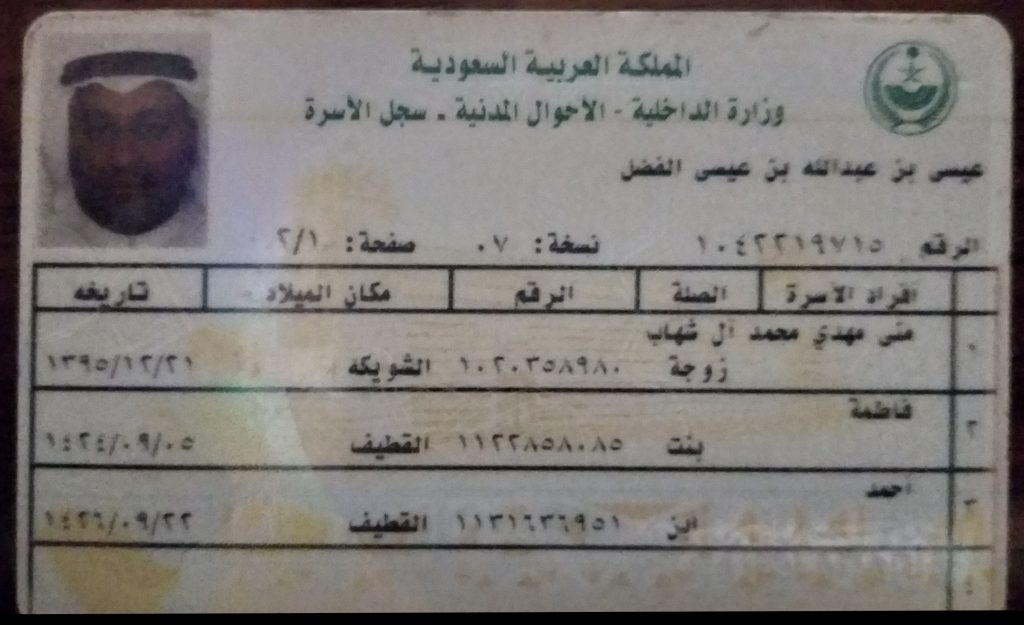 المملكة العربية السعودية
وزارة الداخلية - الأحوال المدنية - سجل الأسرة
عيسى بن عبدالله بن عيسى الفضل
الرقم ١٠٤٢٢١٩٧١٥ نسخة: ٠٧ صفحة: ٢/١
أفراد الأسرة الصلة الرقم مكان الميلاد تاريخه
منى مهدي محمد آل شهاب
زوجة ١٠٢٠٣٥٨٩٨٠ الشويكه ١٣٩٥/١٢/٢١
فاطمة
٢ بنت ١١٢٢٨٥٨٠٨٥ القطيف ١٤٢٤/٠٩/٠٥
احمد
٣ ابن ١١٣١٦٣٦٩٥١ القطيف ١٤٢٦/٠٩/٢٢
٤